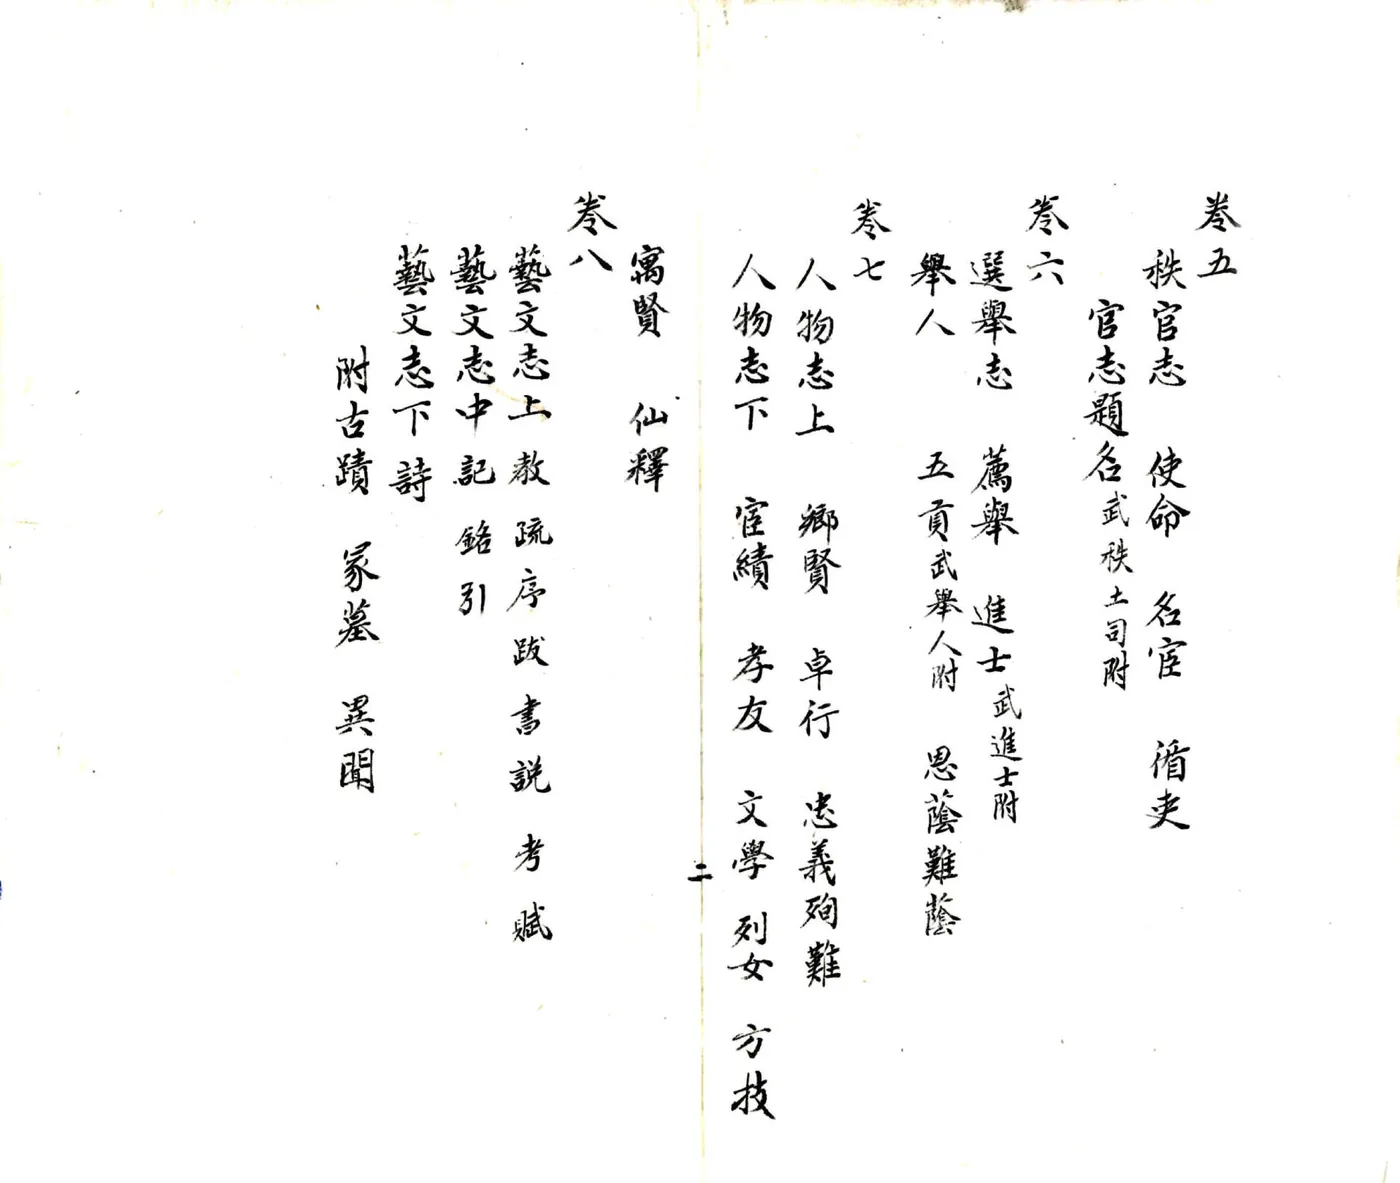 卷五
秩官志　使命　名宦　循吏
官志題名武秩土司附
卷六
選舉志　薦舉　進士武進士附
舉人　五貢武舉人附　恩蔭難蔭
卷七
人物志上　鄉賢　卓行　忠義殉難
人物志下　宦績　孝友　文學　列女　方技
二
寓賢　仙釋
卷八
藝文志上敕疏序跋書説考賦
藝文志中記銘引
藝文志下詩
附古蹟　冢墓　異聞